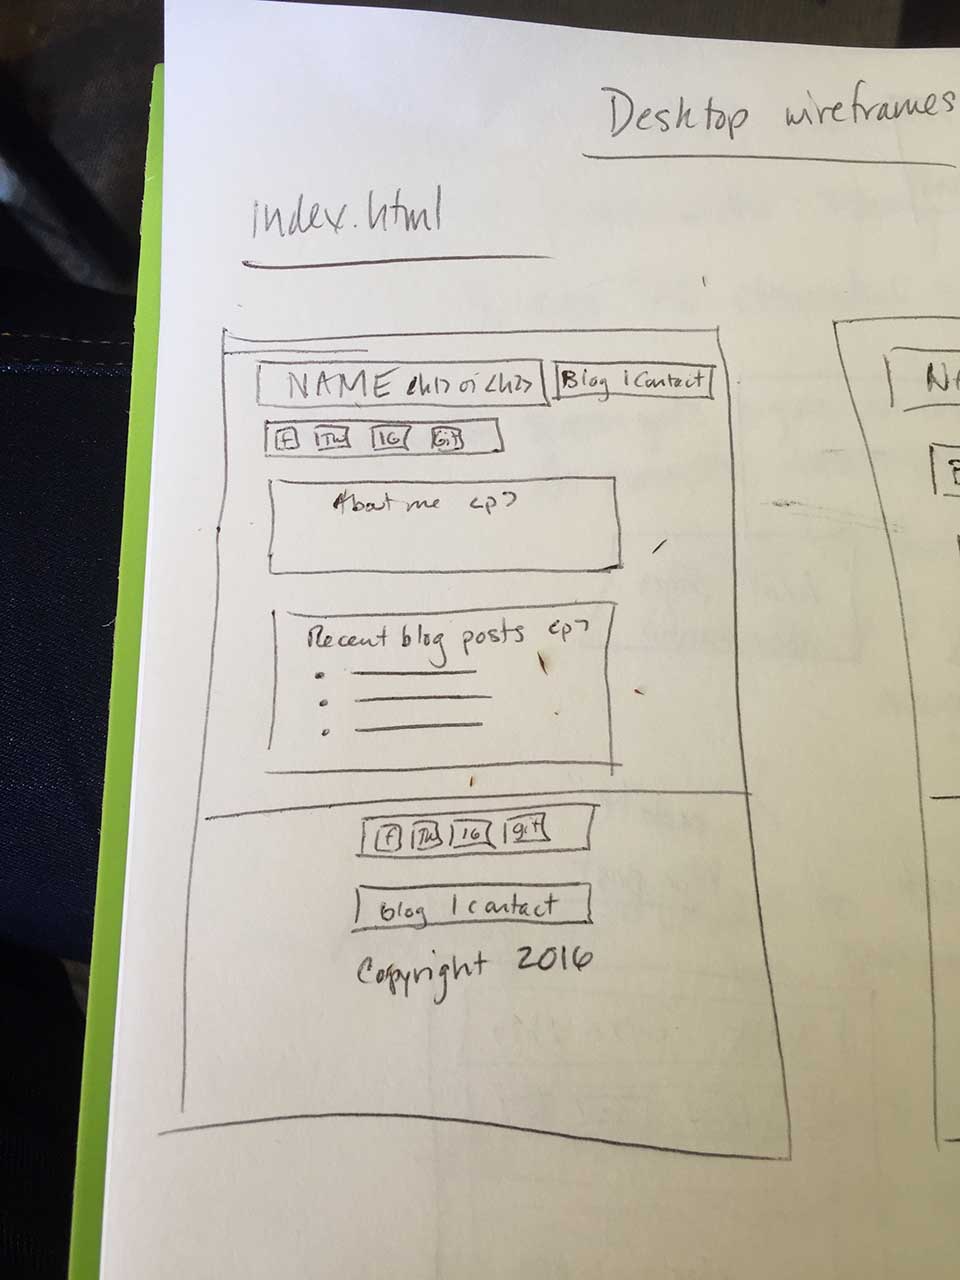 Desktop wireframes
index.html
NAME <h1> or <h2>
Blog | Contact
f Tw IG Git
About me <p>
Recent blog posts <p>
f Tw IG git
Blog | contact
Copyright 2016